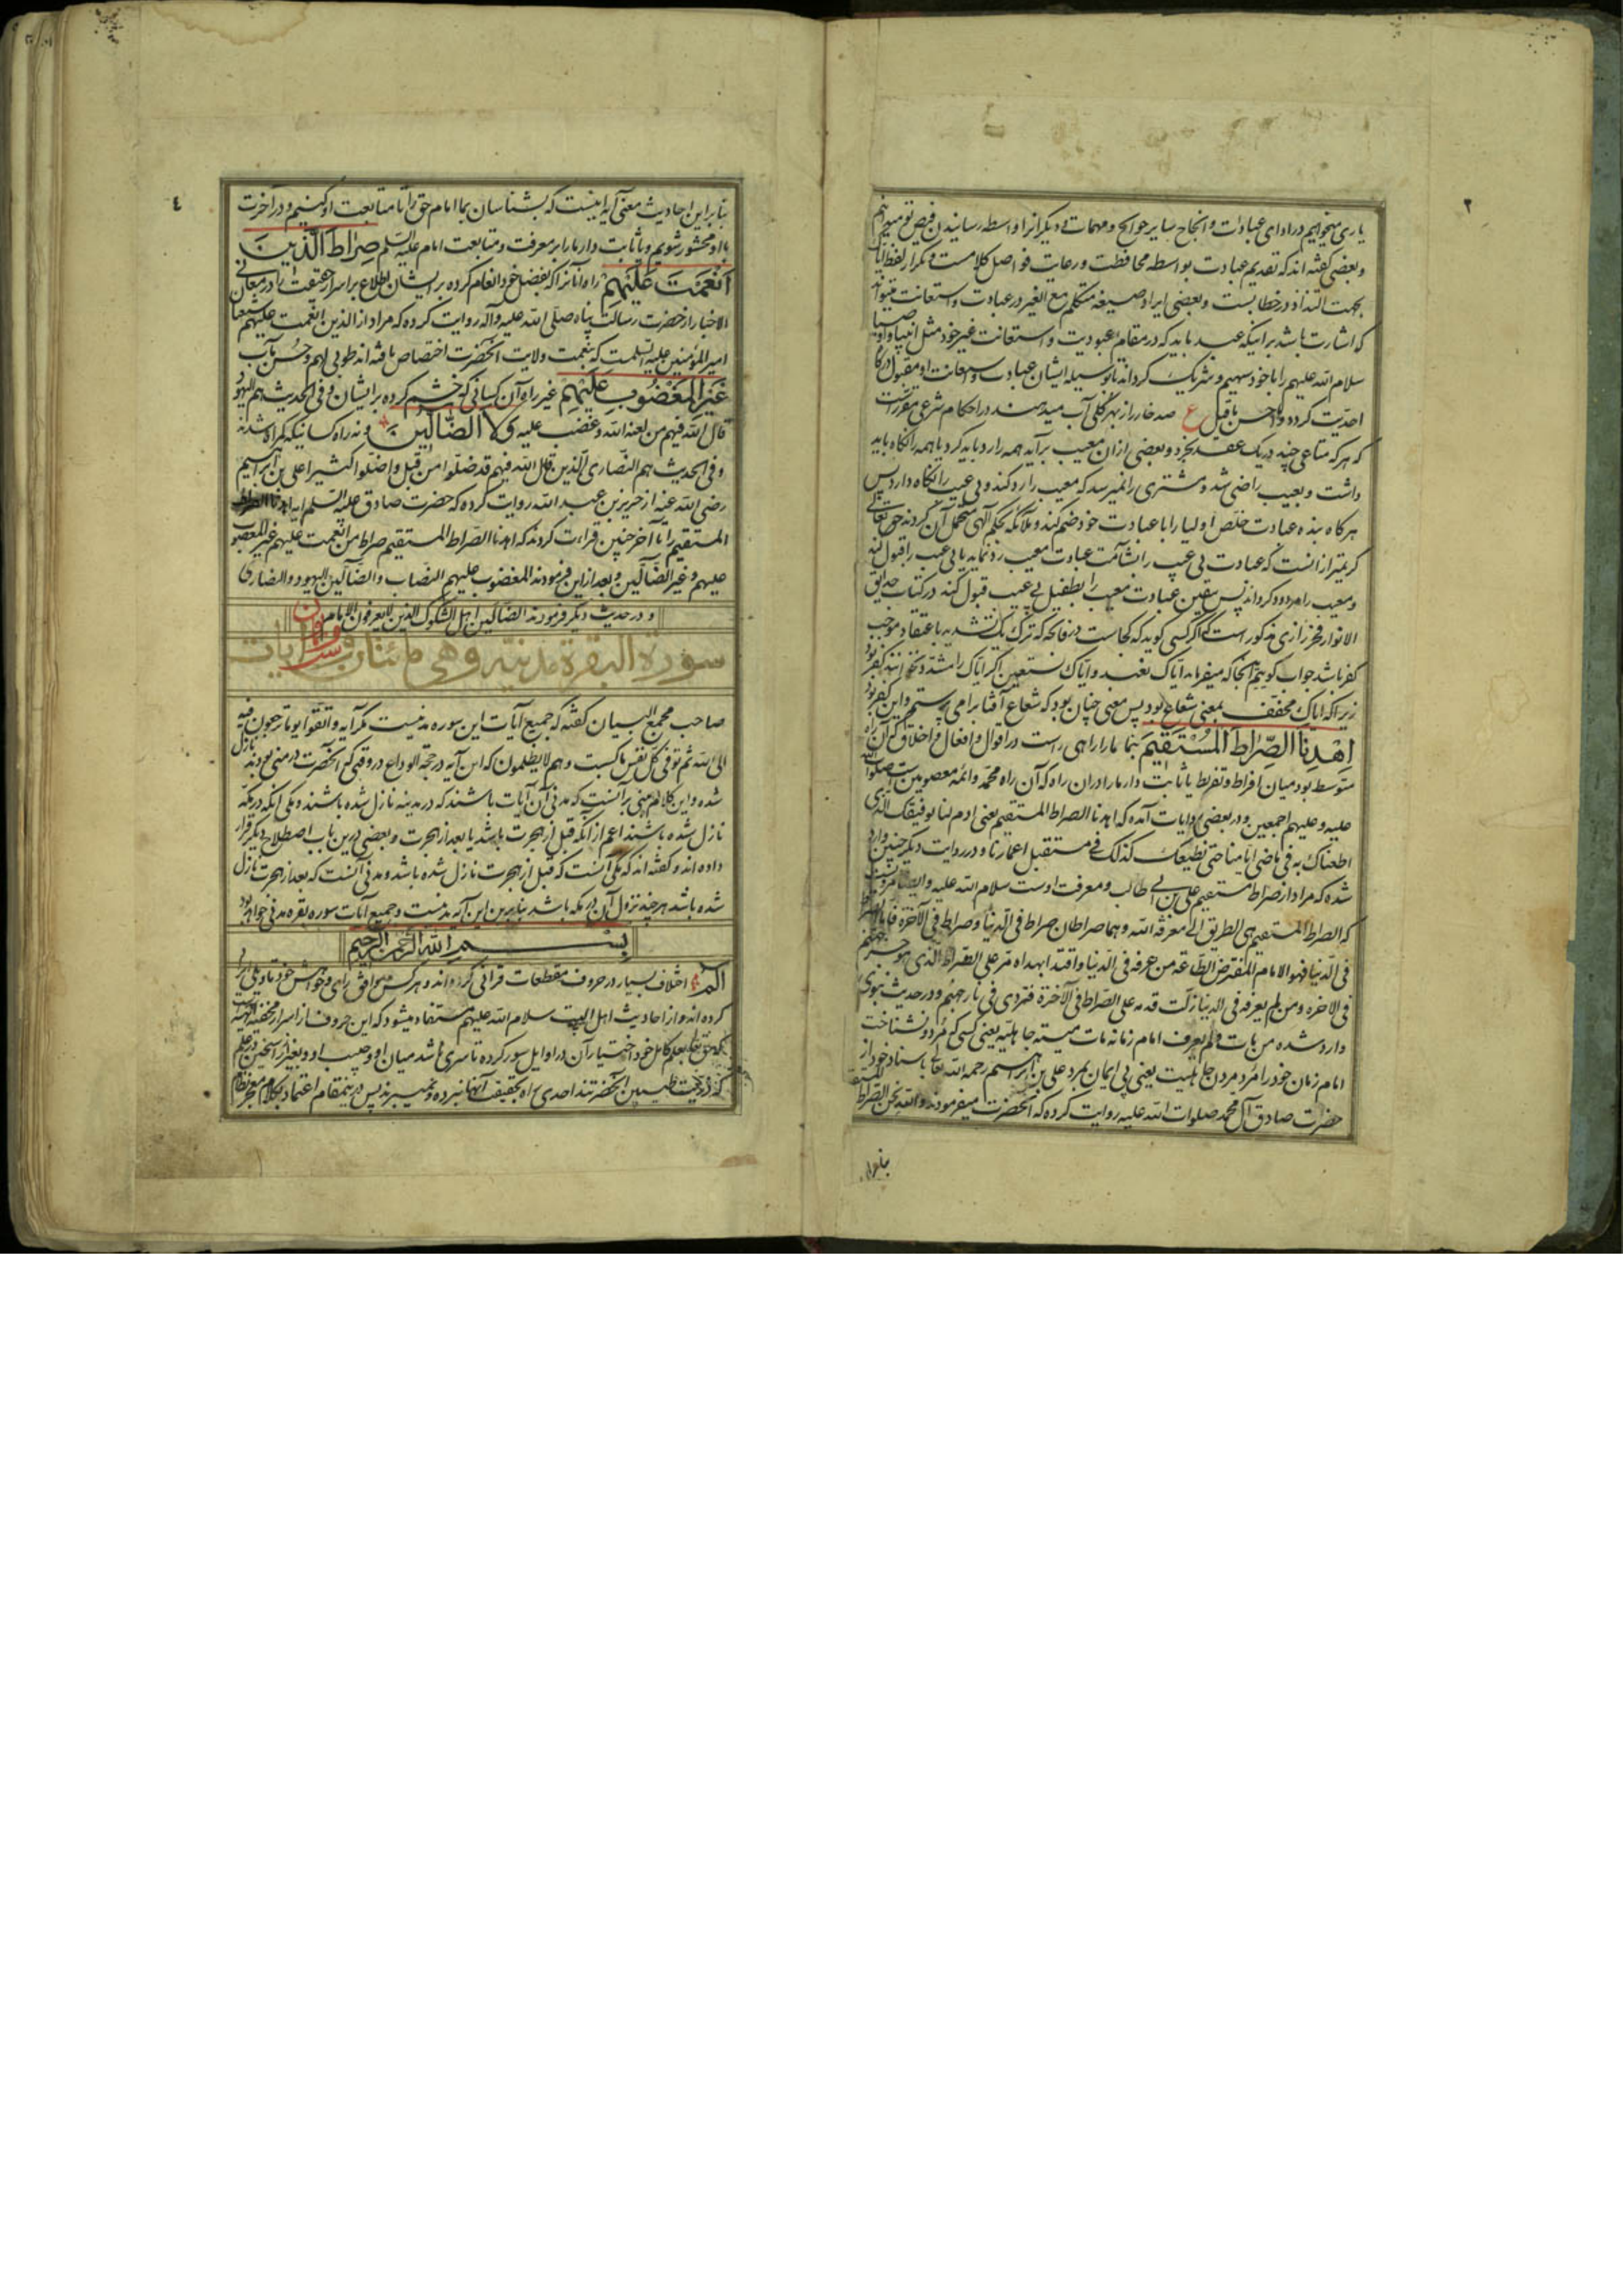 یاری میخواهیم در ادای عبادات و انجاح سایر حوایج و مهمات و دیگر آنرا واسطه رسانیدن فیض تو میدانیم
و بعضی گفته اند که تقدیم عبادت بواسطه محافظت و رعایت فواصل کلامست و تکرار لفظ ایاک
بجهت التذاذ در خطابست و بعضی ایراد صیغه متکلم مع الغیر در عبادت و استعانت میتواند
که اشارت باشد بر اینکه عبد باید که در مقام عبودیت و استعانت غیر خود مثل انبیا و اوصیا
سلام الله علیهم را با خود سهیم و شریک گرداند تا بوسیله ایشان عبادت و استعانت او مقبول درگاه
احدیت گردد و لاحسن ما قیل ع صد خار را از بهر گلی آب میدهند در احکام شرعی مقررست
که هر که متاعی چند در یک عقد بخرد و بعضی از ان معیب برآید همه را رد باید کرد یا همه را نگاه باید
داشت و بعیب راضی شد و مشتری را نمیرسد که معیب را رد کند و بی عیب را نگاه دارد پس
هرگاه بنده عبادت خلص اولیا را با عبادت خود ضم کند و ملائکه بحکم الهی متحمل آن گردند حق تعالی
کریمتر از آنست که عبادت بی عیب را بشآمت عبادت معیب رد نماید یا بی عیب را قبول کند
و معیب را مردود گرداند پس یقین عبادت معیب را بطفیل بی عیب قبول کند در کتاب حدایق
الانوار فخر رازی مذکور است که اگر کسی گوید که کجاست در فاتحه که ترک یک تشدید با اعتقاد موجب
کفر باشد جواب گوییم آنجا که میفرماید ایاک نعبد و ایاک نستعین اگر ایاک را مشدد نخوانند کفر بود
زیرا که ایاک مخفف بمعنی شعاع بود پس معنی چنان بود که شعاع آفتاب را می پرستم و این کفر بود
اِهْدِنَا الصِّرَاطَ الْمُسْتَقِیمَ بنما ما را راهی راست در اقوال و افعال و اخلاق که آن راه
متوسط بود میان افراط و تفریط یا ثابت دار ما را در ان راه که آن راه محمد و ائمه معصومین است صلوات الله
علیه و علیهم اجمعین و در بعضی روایات آمده که اهدنا الصراط المستقیم یعنی ادم لنا توفیقک الذی
اطعناک به فی ماضی ایامنا حتی نطیعک کذلک فی مستقبل اعمارنا و در روایت دیگر چنین وارد
شده که مراد از صراط مستقیم علی بن ابی طالب و معرفت اوست سلام الله علیه و ایضا مرویست
که الصراط المستقیم هی الطریق الی معرفة الله و هما صراطان صراط فی الدنیا و صراط فی الآخرة فاما الصراط
فی الدنیا فهو الامام المفترض الطاعة من عرفه فی الدنیا و اقتدا بهداه مر علی الصراط الذی هو جسر جهنم
فی الاخره و من لم یعرفه فی الدنیا زلت قدمه علی الصراط فی الآخرة فتردی فی نار جهنم و در حدیث نبوی
وارد شده من مات و لم یعرف امام زمانه مات میتة جاهلیة یعنی کسی که مرد و نشناخت
امام زمان خود را مرد مردن جاهلیت یعنی بی ایمان بمرد علی بن ابراهیم رحمه الله تعالی باسناد خود از
حضرت صادق آل محمد صلوات الله علیه روایت کرده که آنحضرت میفرمودند و الله نحن الصراط المستقیم
بنابراین
بنابر این احادیث معنی آیه اینست که بشناسان بما امام حق را تا متابعت او کنیم و در آخرت
با او محشور شویم و یا ثابت دار ما را بر معرفت و متابعت امام علیه السلم صِرَاطَ الَّذِینَ
اَنْعَمْتَ عَلَیْهِمْ راه آنانرا که بفضل خود انعام کرده بر ایشان اطلاع بر اسرار حقیقت را در معانی
الاخبار از حضرت رسالت پناه صلی الله علیه و آله روایت کرده که مراد از الذین انعمت علیهم شیعیان
امیر المؤمنین علیه السلمست که بنعمت ولایت آنحضرت اختصاص یافته اند طوبی لهم و حسن مآب
غَیْرِ الْمَغْضُوبِ عَلَیْهِمْ غیر راه آن کسانی که خشم کرده بر ایشان و فی الحدیث هم الیهود
قال الله فیهم من لعنه الله و غضب علیه وَلَا الضَّالِّینَ و نه راه کسانیکه گمراه شدند
و فی الحدیث هم النصاری الذین قال الله فیهم قد ضلوا من قبل و اضلوا کثیرا علی بن ابراهیم
رضی الله عنه از حریز بن عبد الله روایت کرده که حضرت صادق علیه السلم آیه اهدنا الصراط
المستقیم را تا آخر چنین قراءت کردند که اهدنا الصراط المستقیم صراط من انعمت علیهم غیر المغضوب
علیهم و غیر الضالین و بعد از این فرمودند المغضوب علیهم النصاب و الضالین الیهود و النصاری
و در حدیث دیگر فرمودند الضالین اهل الشکوک الذین لا یعرفون الامام
سورة البقرة مدنیه و هی مائتان و آیات
صاحب مجمع البیان گفته که جمیع آیات این سوره مدنیست مگر آیه و اتقوا یوما ترجعون فیه
الی الله ثم توفی کل نفس ما کسبت و هم لا یظلمون که این آیه در حجة الوداع در وقتی که آنحضرت در منی بودند نازل
شده و این کلام مبنی بر آنست که مدنی آن آیات باشند که در مدینه نازل شده باشند و مکی آنکه در مکه
نازل شده باشند اعم از آنکه قبل از هجرت باشد یا بعد از هجرت و بعضی درین باب اصطلاح دیگر قرار
داده اند و گفته اند که مکی آنست که قبل از هجرت نازل شده باشد و مدنی آنست که بعد از هجرت نازل
شده باشد هر چند نزول آن در مکه باشد بنابرین این آیه مدنیست و جمیع آیات سوره بقره مدنی خواهد بود
بسم الله الرحمن الرحیم
الم اختلاف بسیار در حروف مقطعات قرآنی کرده اند و هر کس موافق رای و خواهش خود تاویلی از برای
کرده اند و از احادیث اهل البیت سلام الله علیهم مستفاد میشود که این حروف از اسرار مخفیه الهیه است
که حق تعالی بعلم کامل خود اختیار آن در اوایل سور کرده تا سری باشد میان او و حبیب او و بغیر راسخین در علم
که ذریت طیبین آنحضرتند احدی راه بحقیقت آنها نبرده و نمیبرند پس درینمقام اعتماد بکلام معجز نظام